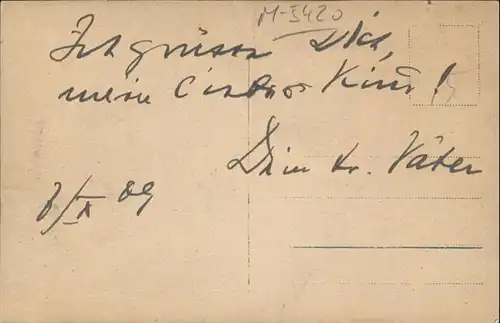 M-5420
Ich grüsse Dich,
mein liebes Kind!
Dein tr. Vater
8/X 09
15